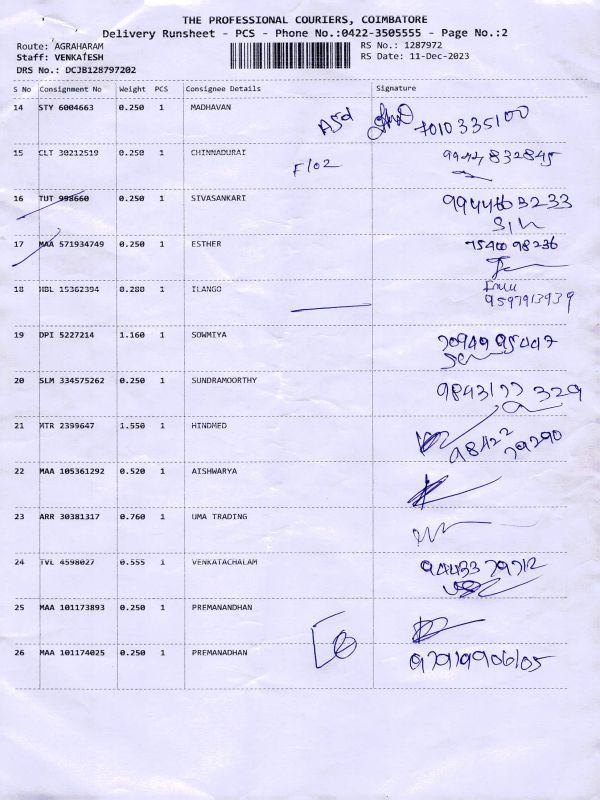 THE PROFESSIONAL COURIERS, COIMBATORE
Delivery Runsheet - PCS - Phone No.:0422-3505555 - Page No.:2
Route: AGRAHARAM
RS No.: 1287972
Staff: VENKATESH
RS Date: 11-Dec-2023
DRS No.: DCJB128797202
S No Consignment No Weight PCS Consignee Details Signature
14 STY 6004663 0.250 1 MADHAVAN 7010335100
15 CLT 30212519 0.250 1 CHINNADURAI 9944832845
F102
16 TUT 998660 0.250 1 SIVASANKARI 9944603233
17 MAA 571934749 0.250 1 ESTHER 7540098236
18 HBL 15362394 0.280 1 ILANGO
9597913939
19 DPI 5227214 1.160 1 SOWMIYA
20 SLM 334575262 0.250 1 SUNDRAMOORTHY 9843177329
21 MTR 2399647 1.550 1 HINDMED
98422
79290
22 MAA 105361292 0.520 1 AISHWARYA
23 ARR 30381317 0.760 1 UMA TRADING
24 TVL 4598027 0.555 1 VENKATACHALAM 9443379712
25 MAA 101173893 0.250 1 PREMANANDHAN
26 MAA 101174025 0.250 1 PREMANADHAN 9791990605